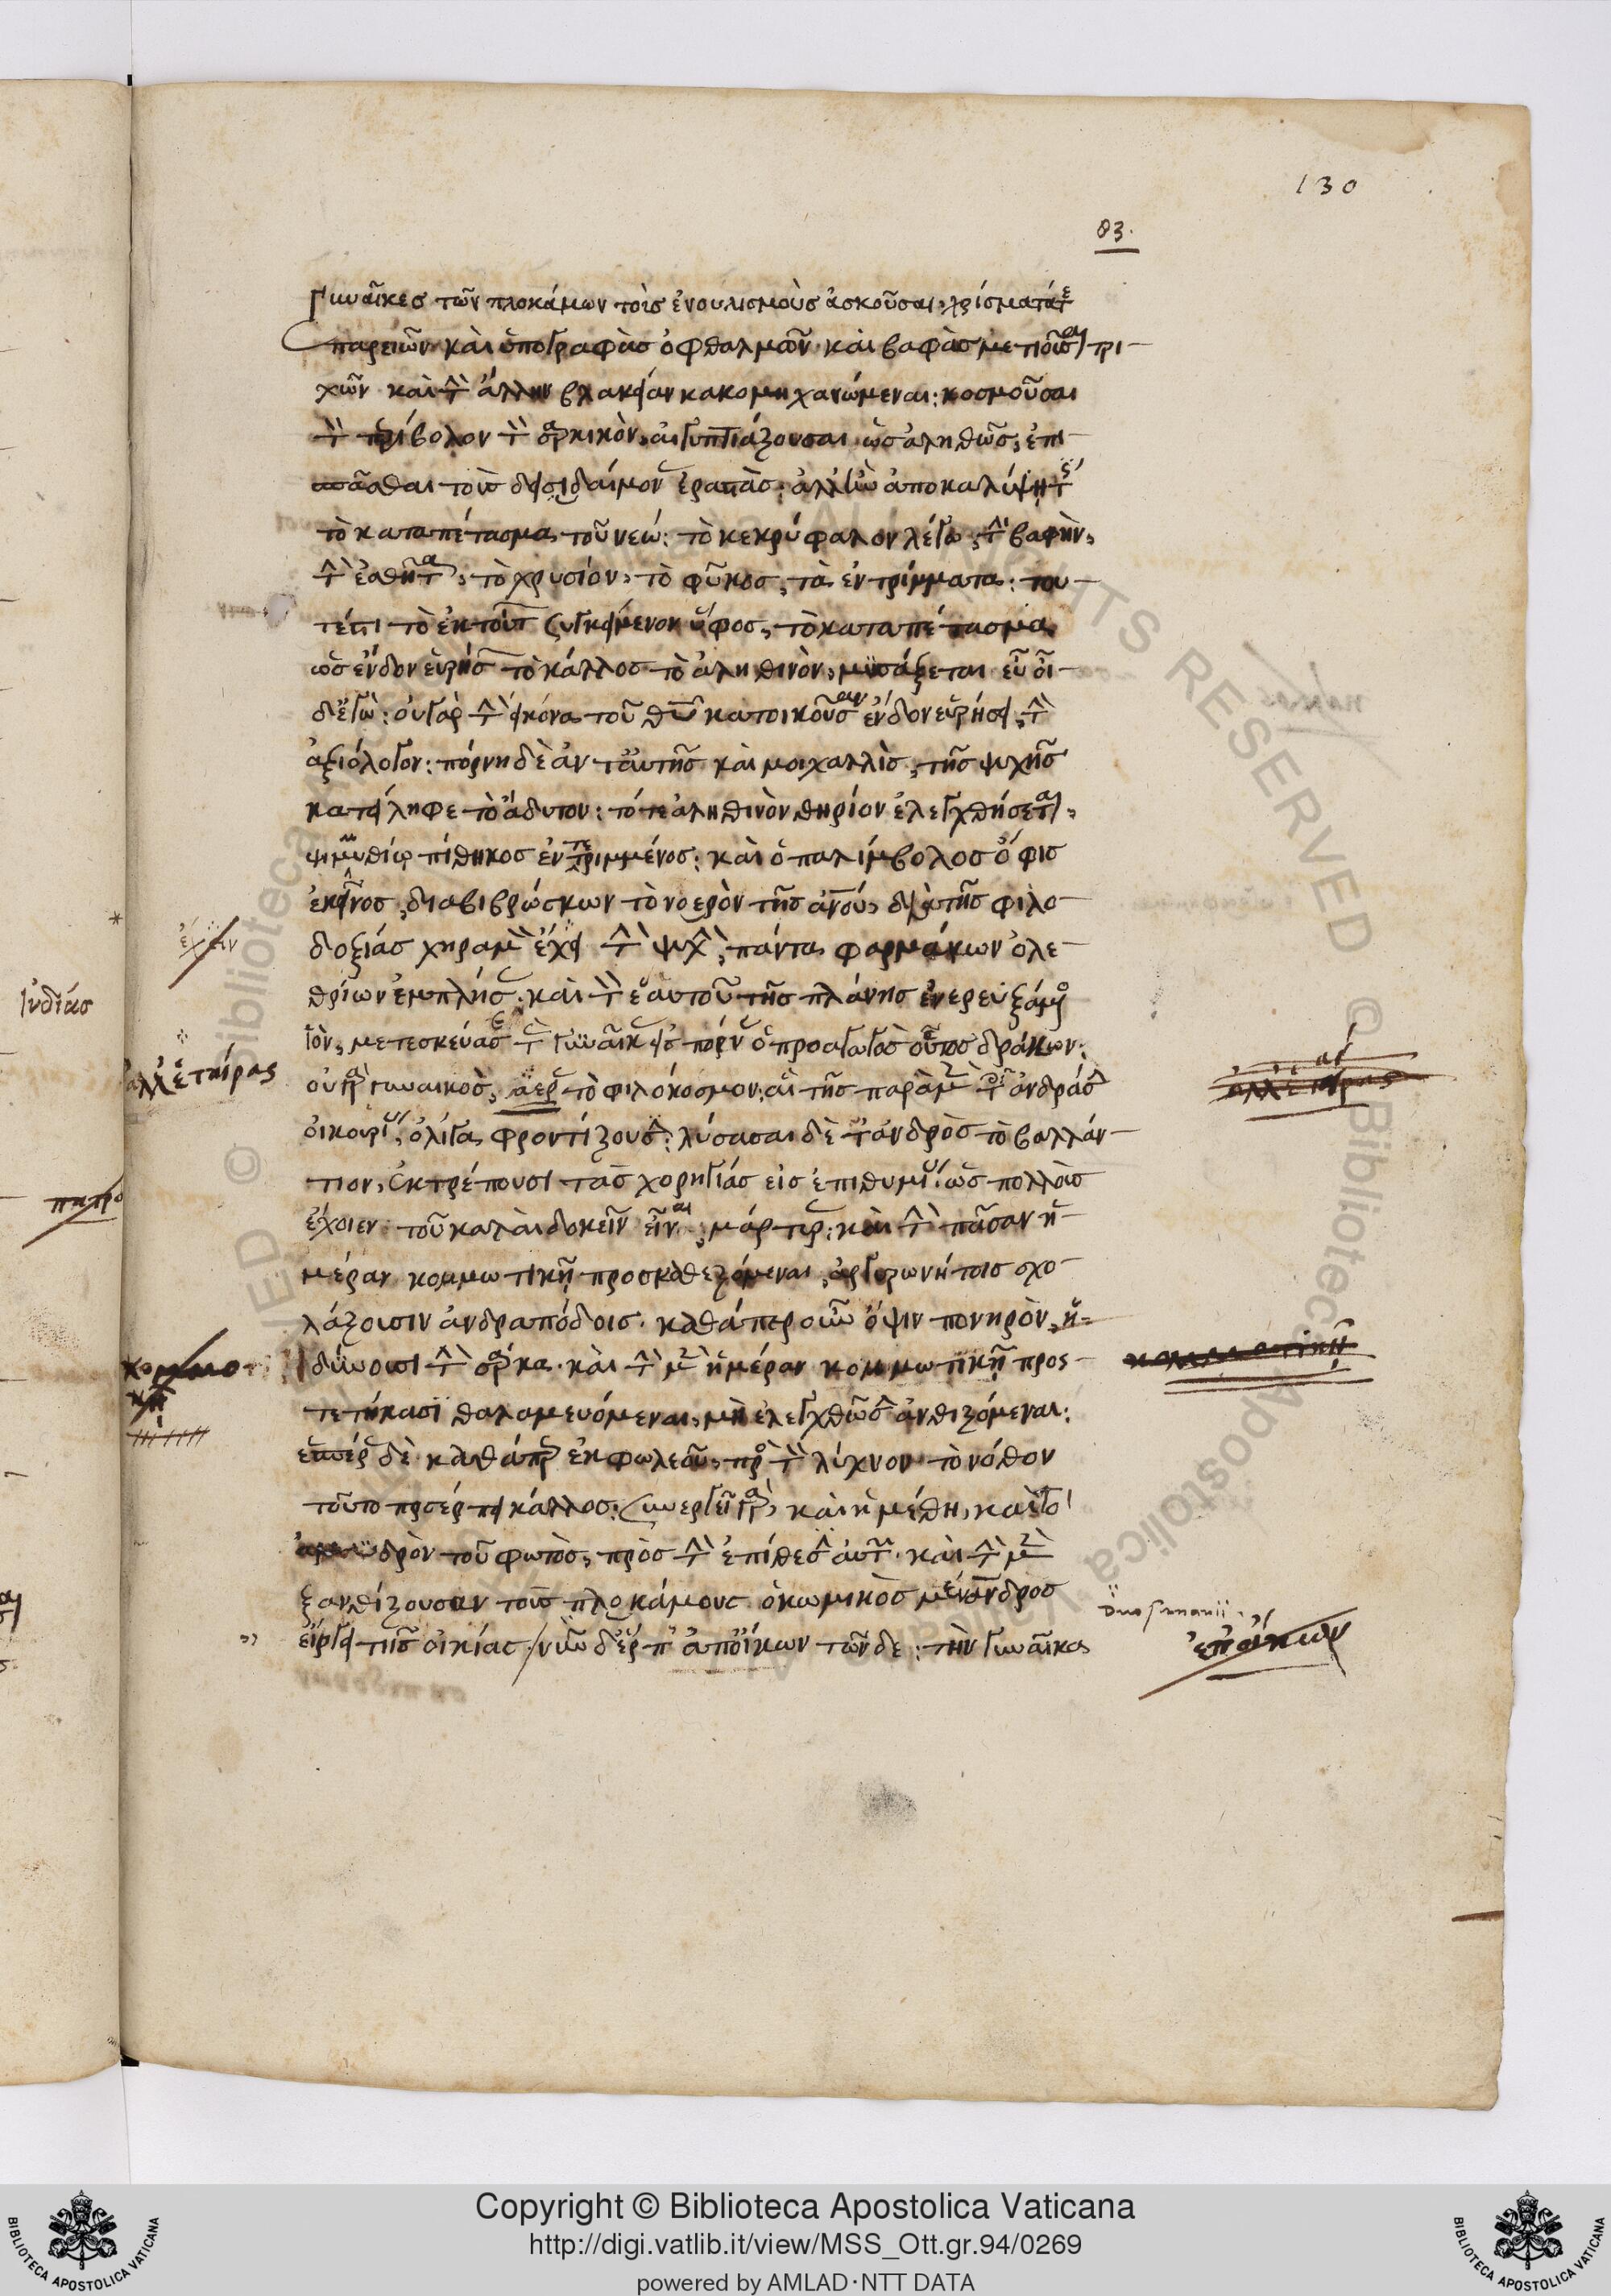 130
83.
Γυναῖκες τῶν πλοκάμων τοὺς ἐνουλισμοὺς ἀσκοῦσαι, χρίσματά τε
παρειῶν καὶ ὑπογραφὰς ὀφθαλμῶν καὶ βαφὰς μετιοῦσαι τρι-
χῶν καὶ τὴν ἄλλην βλακείαν κακομηχανώμεναι: κοσμοῦσαι
τὸν περίβολον τὸν σαρκικὸν, αἰγυπτιάζουσαι ὡς ἀληθῶς, ἐπι-
σπᾶσθαι τοὺς δεισιδαίμονας ἐραστὰς: ἀλλ' ἐὰν ἀποκαλύψῃ τις
τὸ καταπέτασμα τοῦ νεώ: τὸ κεκρύφαλον λέγω, τὴν βαφὴν,
τὴν ἐσθῆτα, τὸ χρυσίον, τὸ φῦκος, τὰ ἐντρίμματα: του-
τέστι τὸ ἐκ τούτων συγκείμενον ὕφος, τὸ καταπέτασμα
ὡς ἔνδον εὑρήσων τὸ κάλλος τὸ ἀληθινὸν, μυσάξεται εὖ οἶ-
δ' ἐγώ: οὐ γὰρ τὴν εἰκόνα τοῦ θεοῦ κατοικοῦσαν ἔνδον εὑρήσει, τὴν
ἀξιόλογον: πόρνη δὲ ἀντ' αὐτῆς καὶ μοιχαλλὶς, τῆς ψυχῆς
κατείληφε τὸ ἄδυτον: τό τε ἀληθινὸν θηρίον ἐλεγχθήσεται,
ψιμυθίῳ πίθηκος ἐντετριμμένος: καὶ ὁ παλίμβολος ὄφις
ἐκεῖνος, διαβιβρώσκων τὸ νοερὸν τῆς ἀνου, διὰ τῆς φιλο-
δοξίας χηραμὸν ἔχει τὴν ψυχὴν, πάντα φαρμάκων ὀλε-
θρίων ἐμπλήσας: καὶ τὸν ἑαυτοῦ τῆς πλάνης ἐνερευξάμενος
ἰὸν, μετεσκεύασε τὰς γυναῖκας εἰς πόρνας ὁ προαγωγὸς οὗτος δράκων:
οὐ γὰρ γυναικὸς, ἀερ τὸ φιλόκοσμον: αἳ τῆς παρὰ μὲν τοῖς ἀνδράσιν
οἰκουρίας, ὀλίγα φροντίζουσιν: λύσασαι δὲ τἀνδρὸς τὸ βαλλάν-
τιον, ἐκτρέπουσι τὰς χορηγίας εἰς ἐπιθυμίας: ὡς πολλοὺς
ἔχοιεν τοῦ καλαὶ δοκεῖν εἶναι, μάρτυρας: καὶ τὴν πᾶσαν ἡ-
μέραν κομμωτικῇ προσκαθεζόμεναι, ἀργυρωνήτοις σχο-
λάζουσιν ἀνδραπόδοις. καθάπερ οὖν ὄψιν πονηρὸν, ἡ-
δύνουσι τὴν σάρκα. καὶ τὴν μὲν ἡμέραν κομμωτικῇ προς-
τετήκασι θαλαμευόμεναι, μὴ ἐλεγχθῶσιν ἀνθιζόμεναι:
ἑσπέρας δὲ καθάπερ ἐκ φωλεοῦ, πρὸς τὸν λύχνον τὸ νόθον
τοῦτο προσέρπει κάλλος: συνεργεῖ γὰρ, καὶ ἡ μέθη, καὶ τὸ
δρὸν τοῦ φωτὸς, πρὸς τὴν ἐπίθεσιν αὐτῶν. καὶ τὴν μὲν
ξανθίζουσαν τοὺς πλοκάμους ὁ κωμικὸς μένανδρος
εἴργει τῆς οἰκίας. νῦν δ' ἕρπ' ἀπ' οἴκων τῶνδε: τὴν γυναῖκα
ἔχειν
ἀλλ' ἑταίρας
κομμω
κῇ
ἐπ' οἴκων
ἰνδίας
πηπρο
Copyright © Biblioteca Apostolica Vaticana
http://digi.vatlib.it/view/MSS_Ott.gr.94/0269
powered by AMLAD·NTT DATA
BIBLIOTECA APOSTOLICA VATICANA
BIBLIOTECA APOSTOLICA VATICANA